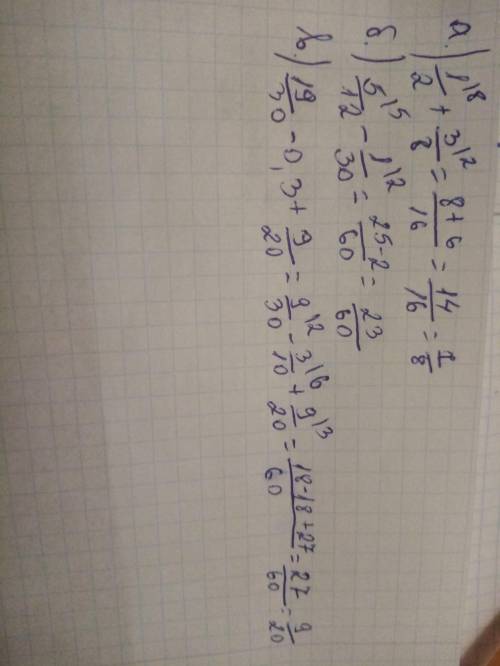 а.) 1\8/2 + 3\2/8 = 8+6/16 = 14/16 = 7/8
б.) 5\5/12 - 1\2/30 = 25-2/60 = 23/60
в.) 19/30 - 0,3 + 9/20 = 9\2/30 - 3\6/10 + 9\3/20 = 18-18+27/60 = 27/60 = 9/20